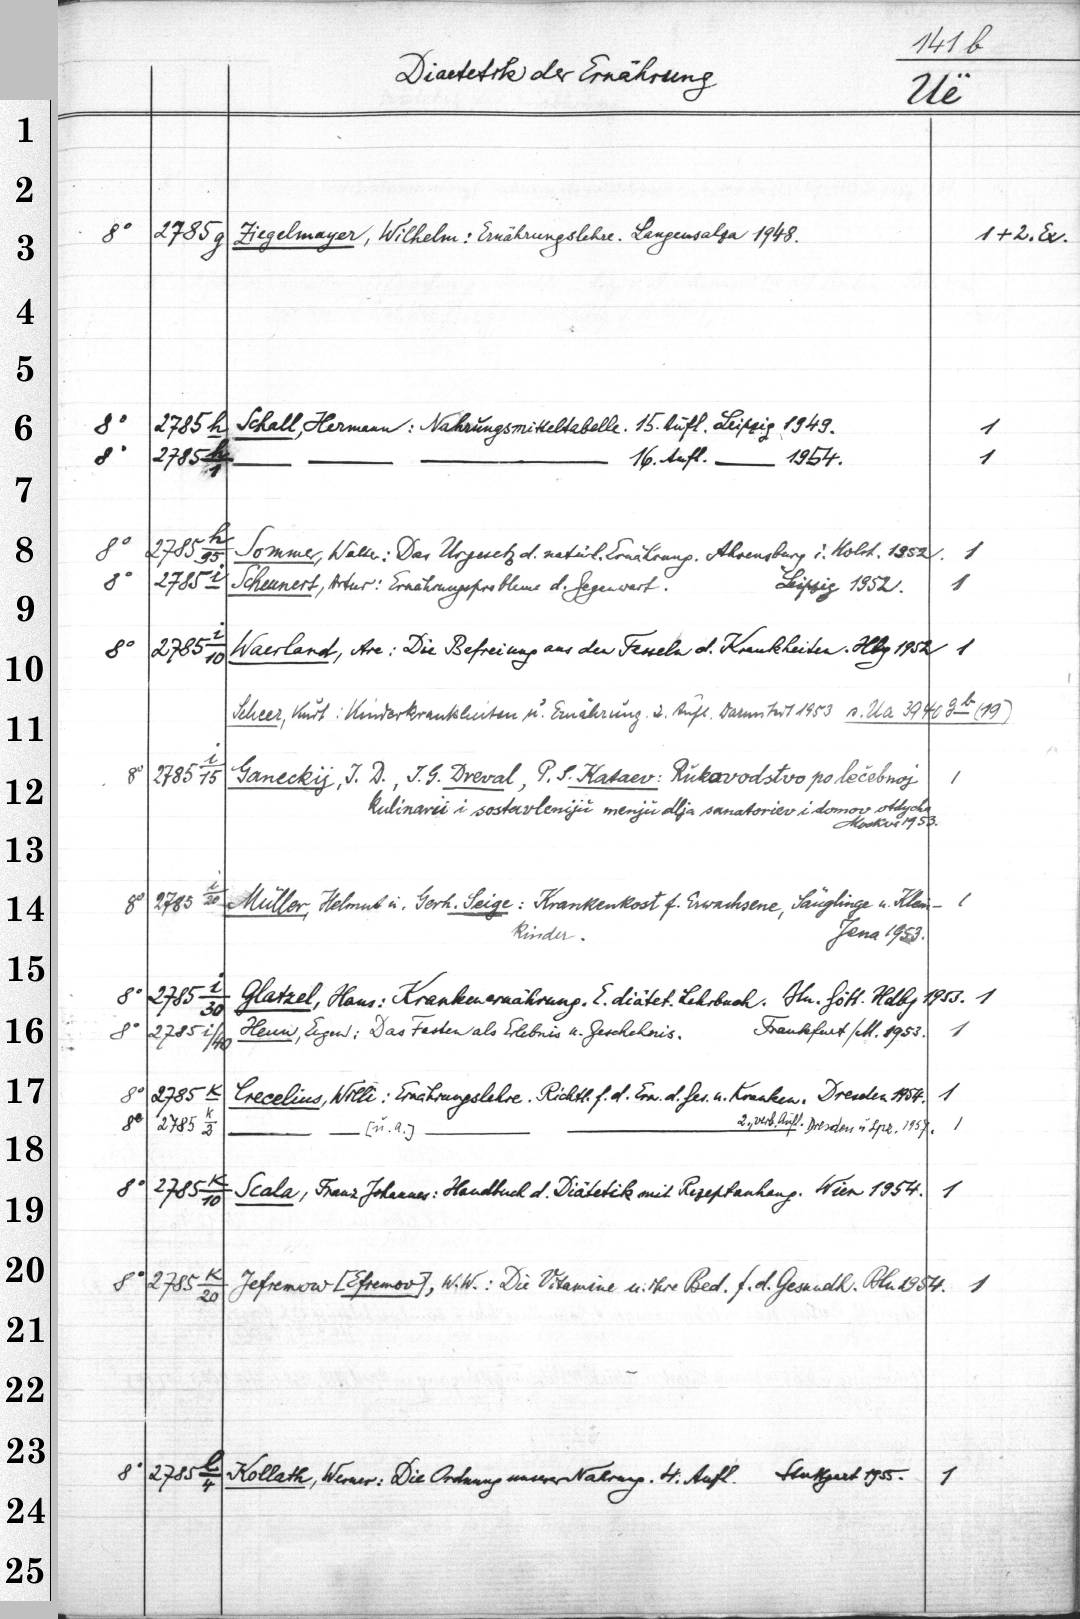 141 b
Diaetetik der Ernährung
Uë
1
2
3 8° 2785g Ziegelmayer, Wilhelm: Ernährungslehre. Langensalza 1948. 1+2. Ex.
4
5
6 8° 2785 h Schall, Hermann: Nahrungsmitteltabelle. 15. Aufl. Leipzig 1949. 1
8° 2785 h/1 — — — 16. Aufl. — 1954. 1
7
8 8° 2785 h/95 Sommer, Walter: Das Urgesetz d. natürl. Ernährung. Ahrensburg i. Holst. 1952. 1
8° 2785 i Scheunert, Artur: Ernährungsprobleme d. Gegenwart. Leipzig 1952. 1
9
10 8° 2785 i/10 Waerland, Are: Die Befreiung aus den Fesseln d. Krankheiten. Hbg 1952 1
11 Scheer, Kurt: Kinderkrankheiten u. Ernährung. 2. Aufl. Darmstadt 1953 s. Ua 3940 gb (19)
12 8° 2785 i/15 Ganeckij, I. D., I. G. Dreval, P. S. Kataev: Rukovodstvo po lečebnoj 1
kulinarii i sostavleniju menju dlja sanatoriev i domov otdycha
Moskva 1953.
13
14 8° 2785 i/20 Müller, Helmut u. Gerh. Seige: Krankenkost f. Erwachsene, Säuglinge u. Klein- 1
kinder. Jena 1953.
15
8° 2785 i/30 Glatzel, Hans: Krankenernährung. E. diätet. Lehrbuch. Bln. Gött. Hdbg 1953. 1
16 8° 2785 i/40 Heun, Eugen: Das Fasten als Erlebnis u. Geschehnis. Frankfurt/M. 1953. 1
17 8° 2785 k Crecelius, Willi: Ernährungslehre. Richtl. f. d. Ern. d. Ges. u. Kranken. Dresden 1954. 1
8° 2785 k/2 — — [u. a.] — — 2., verb. Aufl. Dresden u. Lpz. 1957. 1
18
19 8° 2785 k/10 Scala, Franz Johannes: Handbuch d. Diätetik mit Rezeptanhang. Wien 1954. 1
20 8° 2785 k/20 Jefremow [Efremov], W. W.: Die Vitamine u. ihre Bed. f. d. Gesundh. Bln 1954. 1
21
22
23 8° 2785 l/4 Kollath, Werner: Die Ordnung unserer Nahrung. 4. Aufl. Stuttgart 1955. 1
24
25